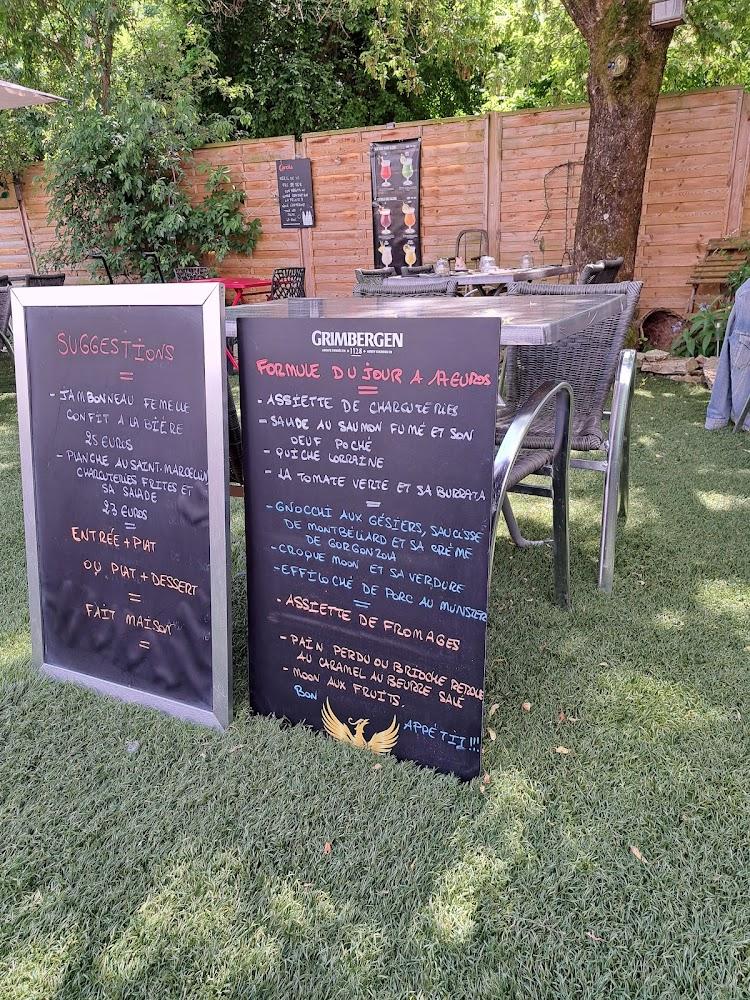 SUGGESTIONS
- JAMBONNEAU FEMELLE
CONFIT A LA BIÈRE
25 EUROS
- PLANCHE AU SAINT-MARCELLIN
CHARCUTERIES FRITES ET
SA SALADE
23 EUROS
ENTRÉE + PLAT
OU PLAT + DESSERT
FAIT MAISON
GRIMBERGEN
1128
FORMULE DU JOUR A 17 EUROS
- ASSIETTE DE CHARCUTERIES
- SALADE AU SAUMON FUMÉ ET SON
OEUF POCHÉ
- QUICHE LORRAINE
- LA TOMATE VERTE ET SA BURRATA
- GNOCCHI AUX GÉSIERS, SAUCISSE
DE MONTBÉLIARD ET SA CRÈME
DE GORGONZOLA
- CROQUE MOON ET SA VERDURE
- EFFILOCHÉ DE PORC AU MUNSTER
- ASSIETTE DE FROMAGES
- PAIN PERDU OU BRIOCHE
AU CARAMEL AU BEURRE SALÉ
- MOON AUX FRUITS.
BON
APPÉTIT !!!